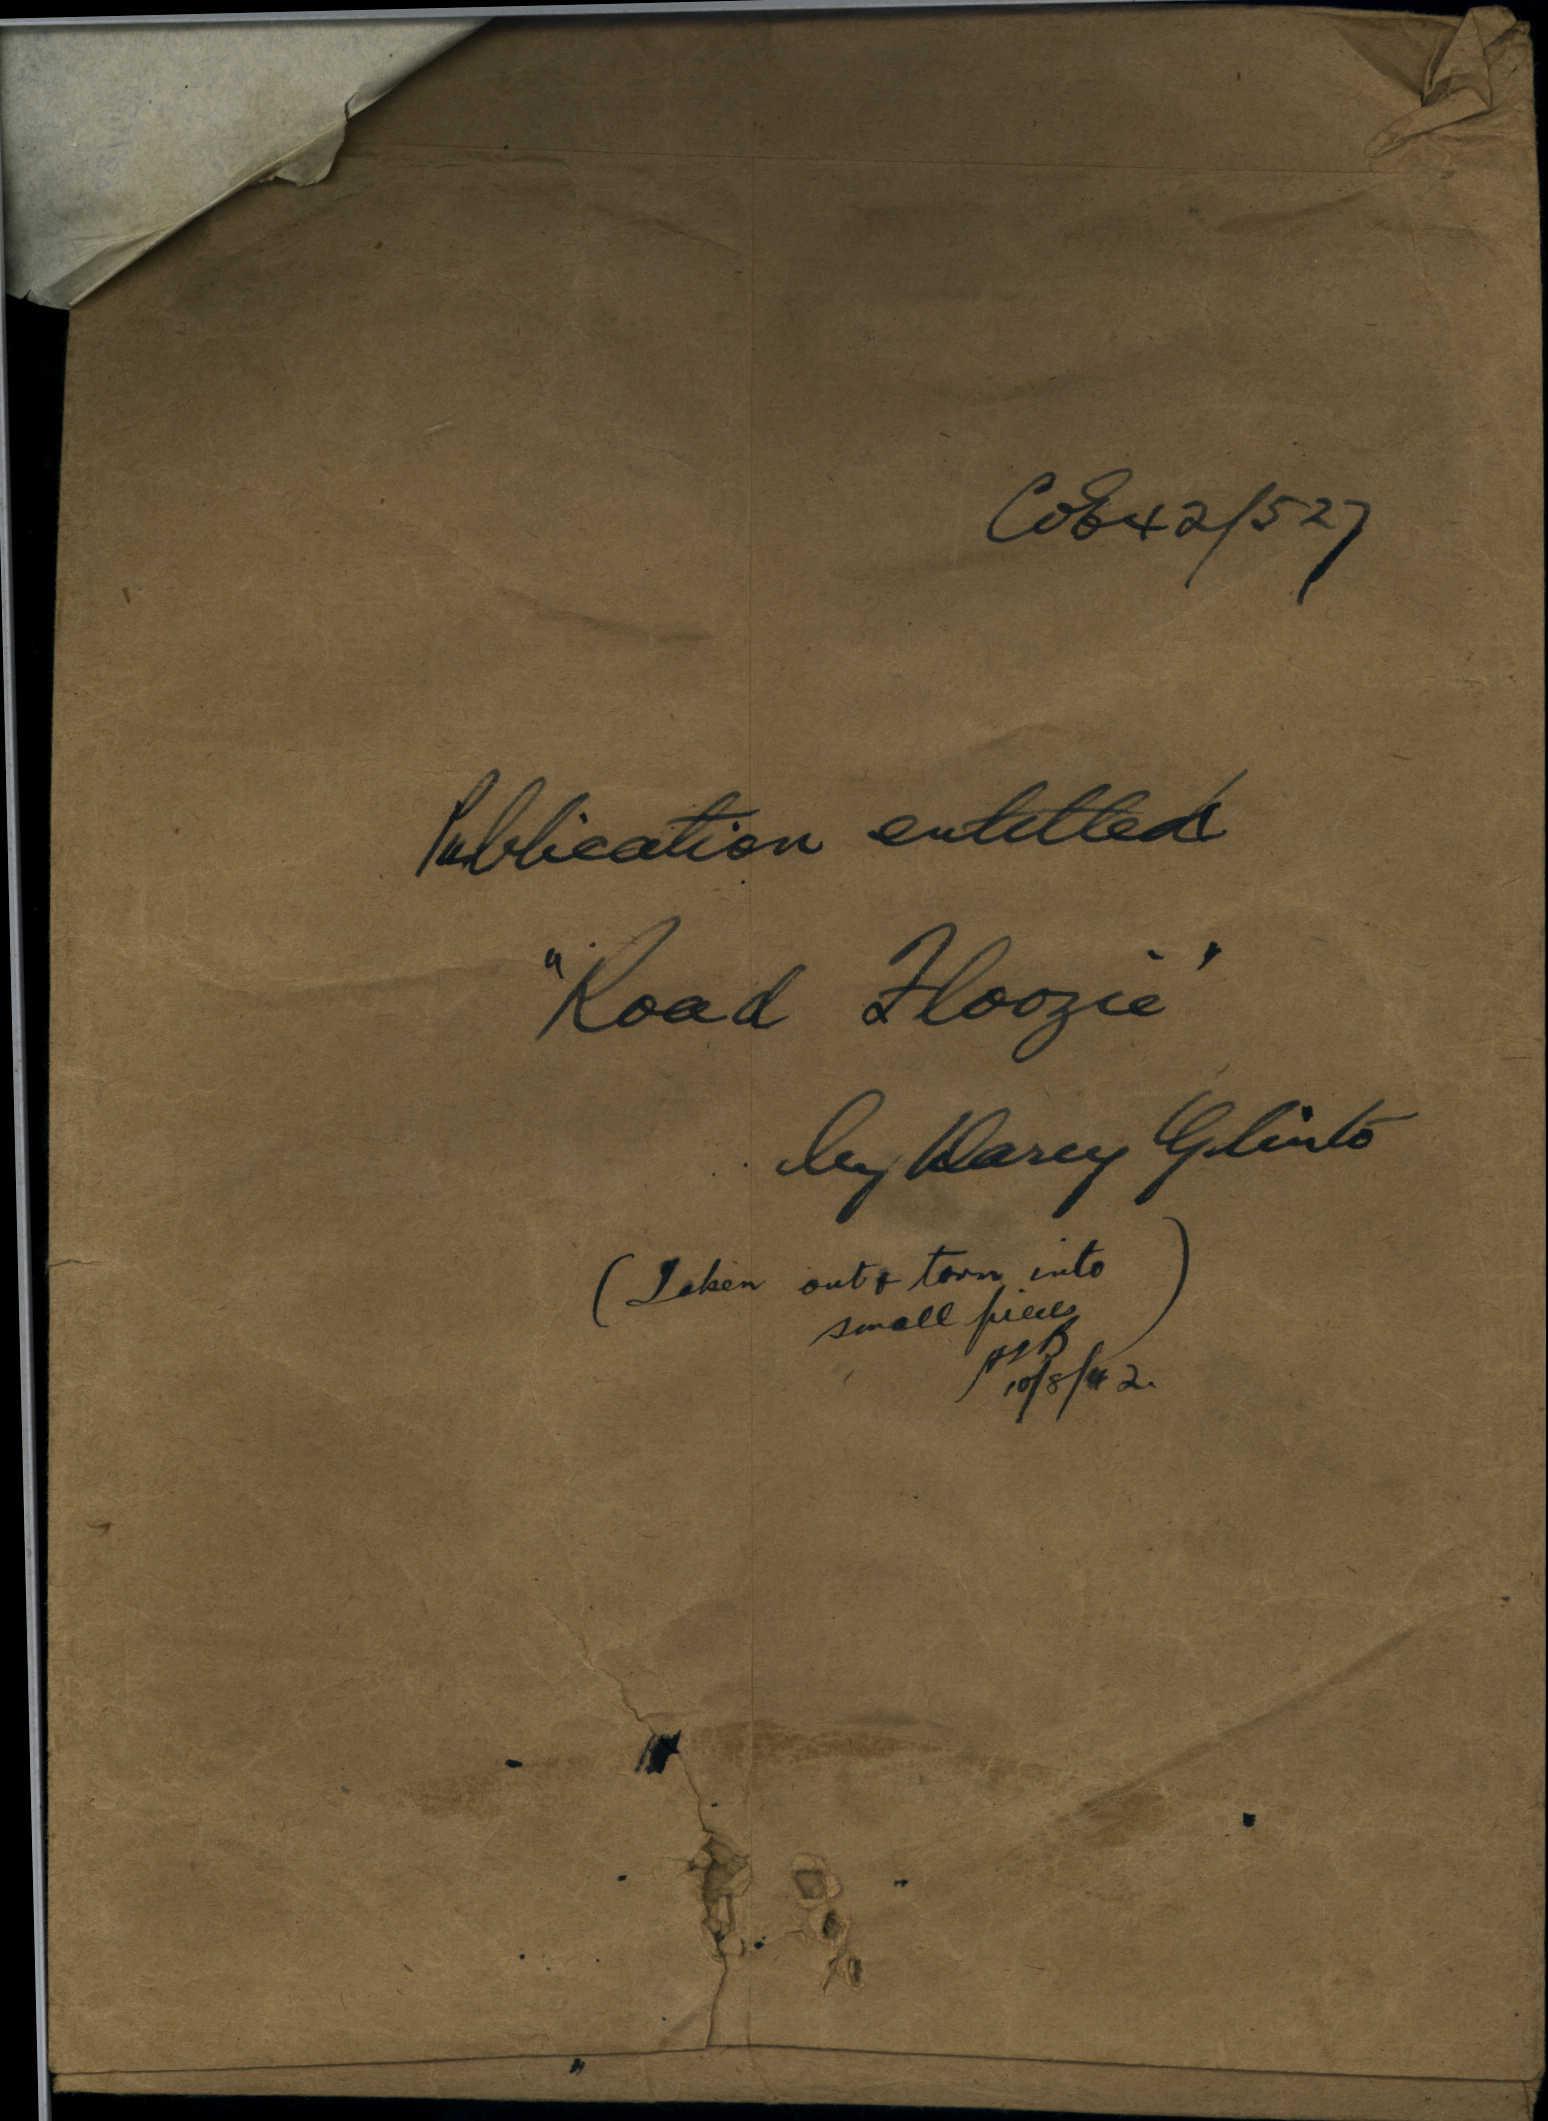 CoE 42/527
Publication entitled
"Road Floozie"
by Darcy Glinto
(Taken out & torn into
small pieces)
10/8/42.